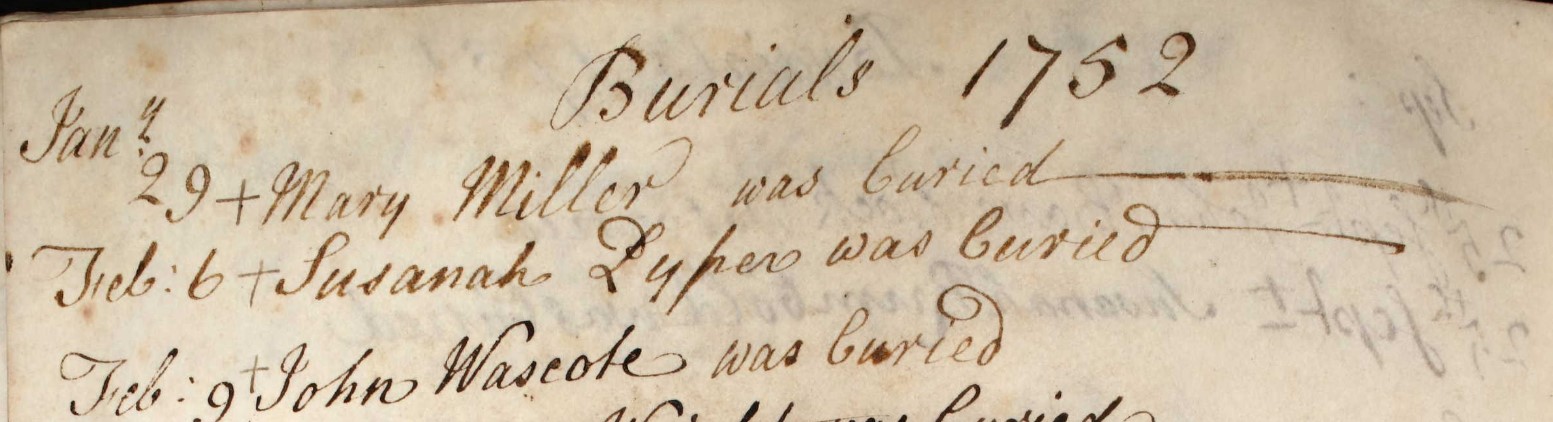 Burials 1752
Jan^y
29 + Mary Miller was buried
Feb: 6 + Susanah Dyper was buried
Feb: 9 + John Wascote was buried
was buried